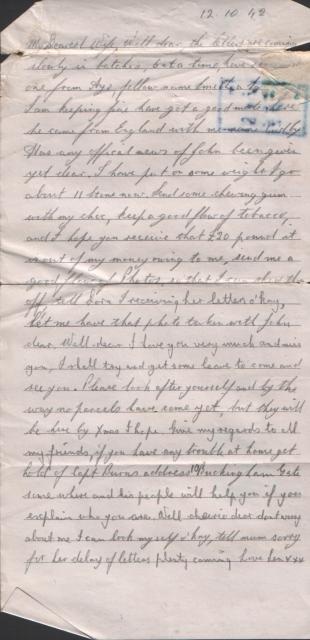 12.10.42
My Dearest Wife Well dear the letters are coming
slowly in batches, but a time, have
one from
I am keeping fine have got a good mate here
he came from England with me name
Has any offical news of John been given
yet dear. I have put on some weight I go
about 11 stone now. Send some chewing gum
with my choc, keep a good flow of tobacco,
and I hope you receive that £20 pound it
is out of my money owing to me, send me a
good photos so that I can show the
off tell Dora I receiving her letters o'kay,
Let me have that photo taken with John
dear. Well dear I love you very much and miss
you, I shall try and get some leave to come and
see you. Please look after yourself and by the
way no parcels have come yet, but they will
be here by Xmas I hope. Give my regards to all
my friends, if you have any trouble at home get
hold of Capt Burns address Buckingham Gate
some where and his people will help you if you
explain who you are. Well cheerio dear dont worry
about me I can look myself o'kay, tell mum sorry
for her delay of letters plenty coming love xxx